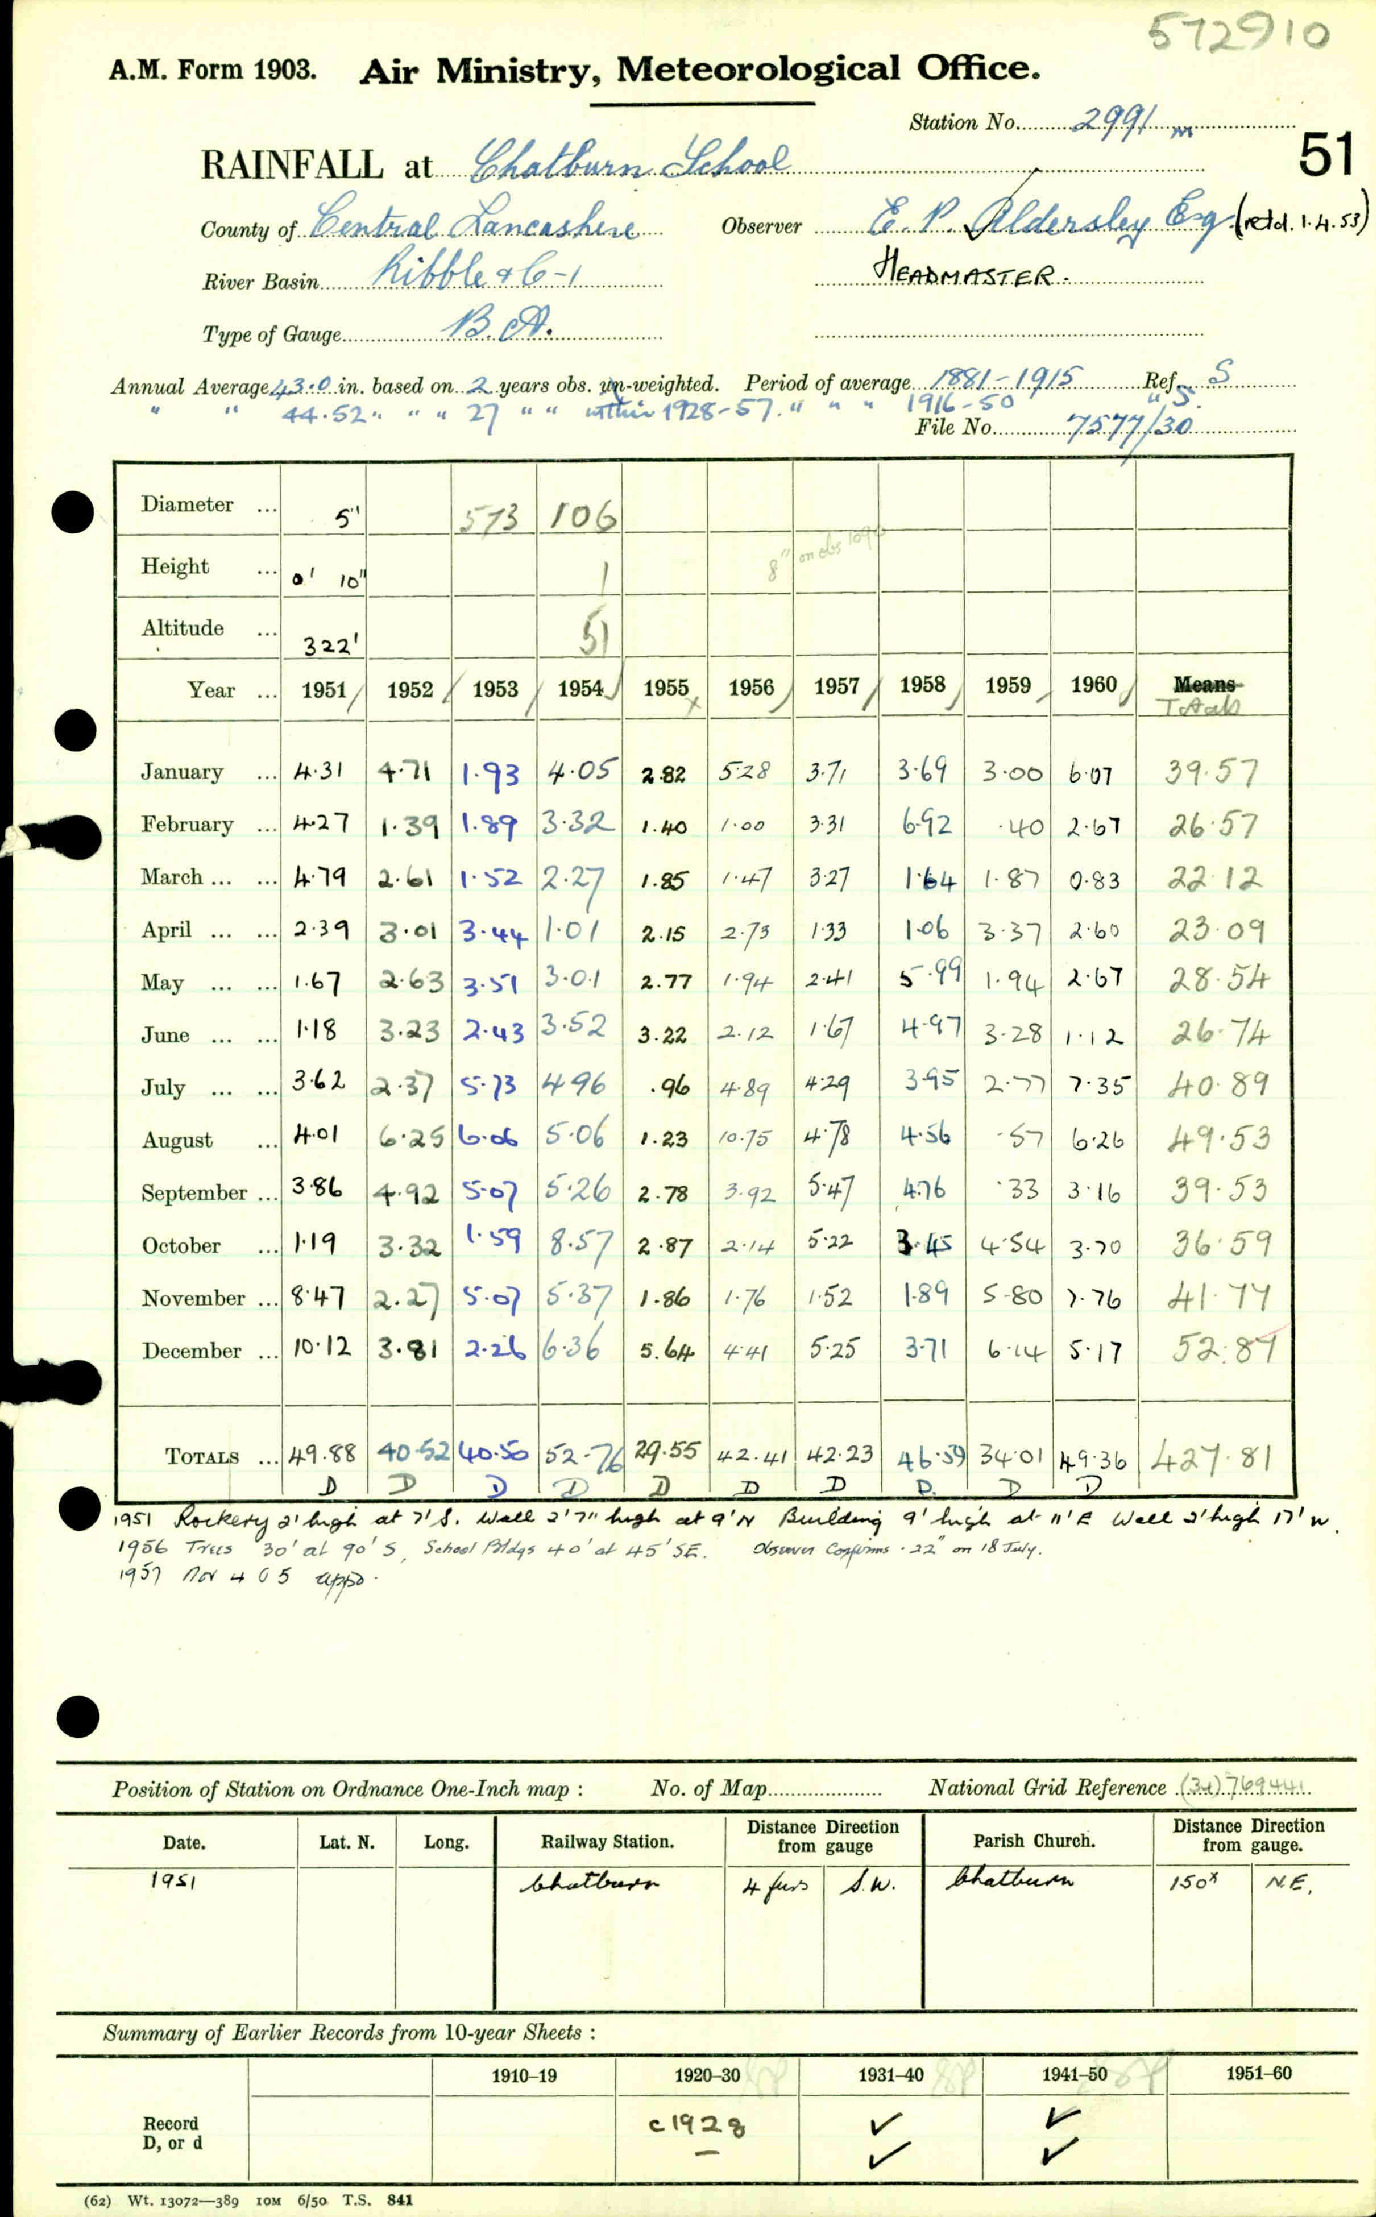 572910
A.M. Form 1903. Air Ministry, Meteorological Office.
Station No. 2991 m
51
RAINFALL at Chatburn School
County of Central Lancashire Observer E. P. Aldersley Esq. (retd. 1.4.53)
River Basin Ribble & C-1 HEADMASTER.
Type of Gauge B.A.
Annual Average 43.0 in. based on 2 years obs. un-weighted. Period of average 1881-1915 Ref. S
" " 44.52 " " " 27 " " within 1928-57. " " " 1916-50 " S.
File No. 7577/30
Diameter ... 5" 573 106
8" on obs
Height ... 0' 10" 1
Altitude ... 322' 51
Year ... 1951 1952 1953 1954 1955 1956 1957 1958 1959 1960 Means
Totals
January ... 4.31 4.71 1.93 4.05 2.82 5.28 3.71 3.69 3.00 6.07 39.57
February ... 4.27 1.39 1.89 3.32 1.40 1.00 3.31 6.92 .40 2.67 26.57
March ... ... 4.79 2.61 1.52 2.27 1.85 1.47 3.27 1.64 1.87 0.83 22.12
April ... ... 2.39 3.01 3.44 1.01 2.15 2.73 1.33 1.06 3.37 2.60 23.09
May ... ... 1.67 2.63 3.51 3.01 2.77 1.94 2.41 5.99 1.94 2.67 28.54
June ... ... 1.18 3.23 2.43 3.52 3.22 2.12 1.67 4.97 3.28 1.12 26.74
July ... ... 3.62 2.37 5.73 4.96 .96 4.89 4.29 3.95 2.77 7.35 40.89
August ... 4.01 6.25 6.06 5.06 1.23 10.75 4.78 4.56 .57 6.26 49.53
September ... 3.86 4.92 5.07 5.26 2.78 3.92 5.47 4.76 .33 3.16 39.53
October ... 1.19 3.32 1.59 8.57 2.87 2.14 5.22 3.45 4.54 3.70 36.59
November ... 8.47 2.27 5.07 5.37 1.86 1.76 1.52 1.89 5.80 7.76 41.77
December ... 10.12 3.81 2.26 6.36 5.64 4.41 5.25 3.71 6.14 5.17 52.87
TOTALS ... 49.88 40.52 40.50 52.76 29.55 42.41 42.23 46.59 34.01 49.36 427.81
D D D D D D D D. D D
1951 Rockery 2' high at 7' S. Wall 2'7" high at 9' N Building 9' high at 11' E Wall 2' high 17' W.
1956 Trees 30' at 90' S, School Bldgs 40' at 45' SE. Observer Confirms .22" on 18 July.
1957 Nov 4 & 5 appd.
Position of Station on Ordnance One-Inch map : No. of Map National Grid Reference (34) 769441
Date. Lat. N. Long. Railway Station. Distance from Direction gauge Parish Church. Distance from Direction gauge.
1951 Chatburn 4 furs S.W. Chatburn 150x N.E.
Summary of Earlier Records from 10-year Sheets :
1910–19 1920–30 1931–40 1941–50 1951–60
Record c1928 ✓ ✓
D, or d – ✓ ✓
(62) Wt. 13072—389 10M 6/50 T.S. 841